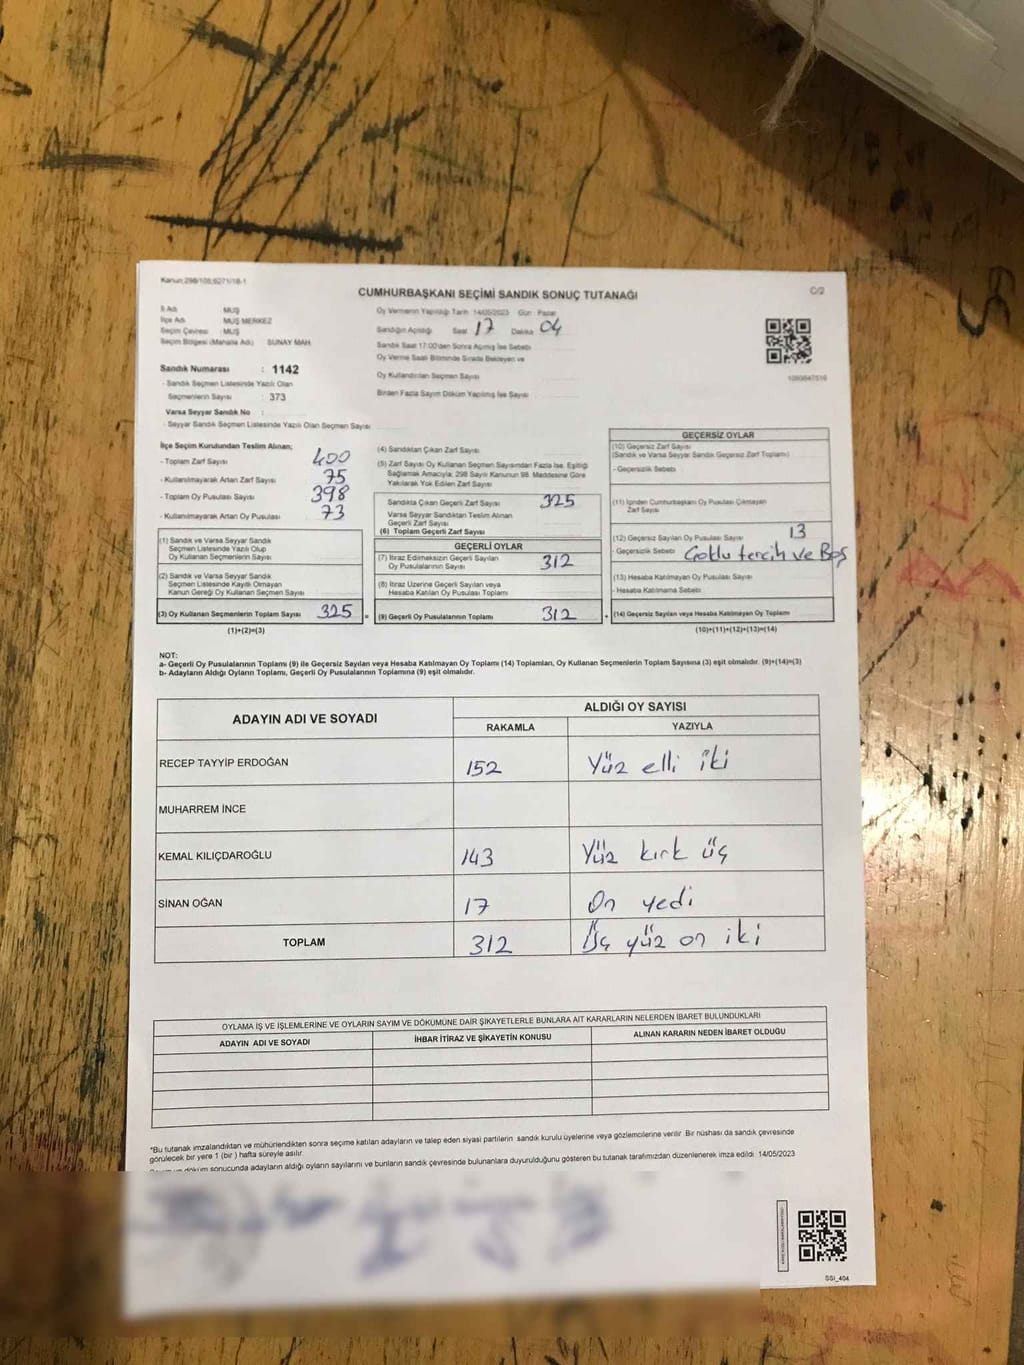 Kanun:298/105,6271/18-1
CUMHURBAŞKANI SEÇİMİ SANDIK SONUÇ TUTANAĞI
C/2
İl Adı MUŞ
İlçe Adı MUŞ MERKEZ
Seçim Çevresi : MUŞ
Seçim Bölgesi (Mahalle Adı) SUNAY MAH.
Sandık Numarası : 1142
- Sandık Seçmen Listesinde Yazılı Olan
Seçmenlerin Sayısı : 373
Varsa Seyyar Sandık No :
- Seyyar Sandık Seçmen Listesinde Yazılı Olan Seçmen Sayısı
Oy Vermenin Yapıldığı Tarih 14/05/2023 Gün : Pazar
Sandığın Açıldığı Saat 17 Dakika 04
Sandık Saat 17:00'den Sonra Açılmış İse Sebebi
Oy Verme Saati Bitiminde Sırada Bekleyen ve
Oy Kullandırılan Seçmen Sayısı
Birden Fazla Sayım Döküm Yapılmış İse Sayısı
İlçe Seçim Kurulundan Teslim Alınan;
- Toplam Zarf Sayısı 400
- Kullanılmayarak Artan Zarf Sayısı 75
- Toplam Oy Pusulası Sayısı 398
- Kullanılmayarak Artan Oy Pusulası 73
(1) Sandık ve Varsa Seyyar Sandık
Seçmen Listesinde Yazılı Olup
Oy Kullanan Seçmenlerin Sayısı
(2) Sandık ve Varsa Seyyar Sandık
Seçmen Listesinde Kayıtlı Olmayan
Kanun Gereği Oy Kullanan Seçmen Sayısı
(3) Oy Kullanan Seçmenlerin Toplam Sayısı 325
(1)+(2)=(3)
(4) Sandıktan Çıkan Zarf Sayısı
(5) Zarf Sayısı Oy Kullanan Seçmen Sayısından Fazla İse, Eşitliği
Sağlamak Amacıyla; 298 Sayılı Kanunun 98. Maddesine Göre
Yakılarak Yok Edilen Zarf Sayısı
Sandıkta Çıkan Geçerli Zarf Sayısı 325
Varsa Seyyar Sandıktan Teslim Alınan
Geçerli Zarf Sayısı
(6) Toplam Geçerli Zarf Sayısı
GEÇERLİ OYLAR
(7) İtiraz Edilmeksizin Geçerli Sayılan
Oy Pusulasının Sayısı 312
(8) İtiraz Üzerine Geçerli Sayılan veya
Hesaba Katılan Oy Pusulası Toplamı
(9) Geçerli Oy Pusulalarının Toplamı 312
GEÇERSİZ OYLAR
(10) Geçersiz Zarf Sayısı
(Sandık ve Varsa Seyyar Sandık Geçersiz Zarf Toplamı)
- Geçersizlik Sebebi
(11) İçinden Cumhurbaşkanı Oy Pusulası Çıkmayan
Zarf Sayısı
(12) Geçersiz Sayılan Oy Pusulası Sayısı 13
- Geçersizlik Sebebi Çoklu tercih ve Boş
(13) Hesaba Katılmayan Oy Pusulası Sayısı
- Hesaba Katılmama Sebebi
(14) Geçersiz Sayılan veya Hesaba Katılmayan Oy Toplamı
(10)+(11)+(12)+(13)=(14)
NOT:
a- Geçerli Oy Pusulalarının Toplamı (9) ile Geçersiz Sayılan veya Hesaba Katılmayan Oy Toplamı (14) Toplamları, Oy Kullanan Seçmenlerin Toplam Sayısına (3) eşit olmalıdır. (9)+(14)=(3)
b- Adayların Aldığı Oyların Toplamı, Geçerli Oy Pusulalarının Toplamına (9) eşit olmalıdır.
ADAYIN ADI VE SOYADI
ALDIĞI OY SAYISI
RAKAMLA YAZIYLA
RECEP TAYYİP ERDOĞAN 152 Yüz elli iki
MUHARREM İNCE
KEMAL KILIÇDAROĞLU 143 Yüz kırk üç
SİNAN OĞAN 17 On yedi
TOPLAM 312 Üç yüz on iki
OYLAMA İŞ VE İŞLEMLERİNE VE OYLARIN SAYIM VE DÖKÜMÜNE DAİR ŞİKAYETLERLE BUNLARA AİT KARARLARIN NELERDEN İBARET BULUNDUKLARI
ADAYIN ADI VE SOYADI İHBAR İTİRAZ VE ŞİKAYETİN KONUSU ALINAN KARARIN NEDEN İBARET OLDUĞU
*Bu tutanak imzalandıktan ve mühürlendikten sonra seçime katılan adayların ve talep eden siyasi partilerin sandık kurulu üyelerine veya gözlemcilerine verilir. Bir nüshası da sandık çevresinde
görülecek bir yere 1 (bir ) hafta süreyle asılır.
döküm sonucunda adayların aldığı oyların sayılarını ve bunların sandık çevresinde bulunanlara duyurulduğunu gösteren bu tutanak tarafımızdan düzenlenerek imza edildi. 14/05/2023
SSI_404